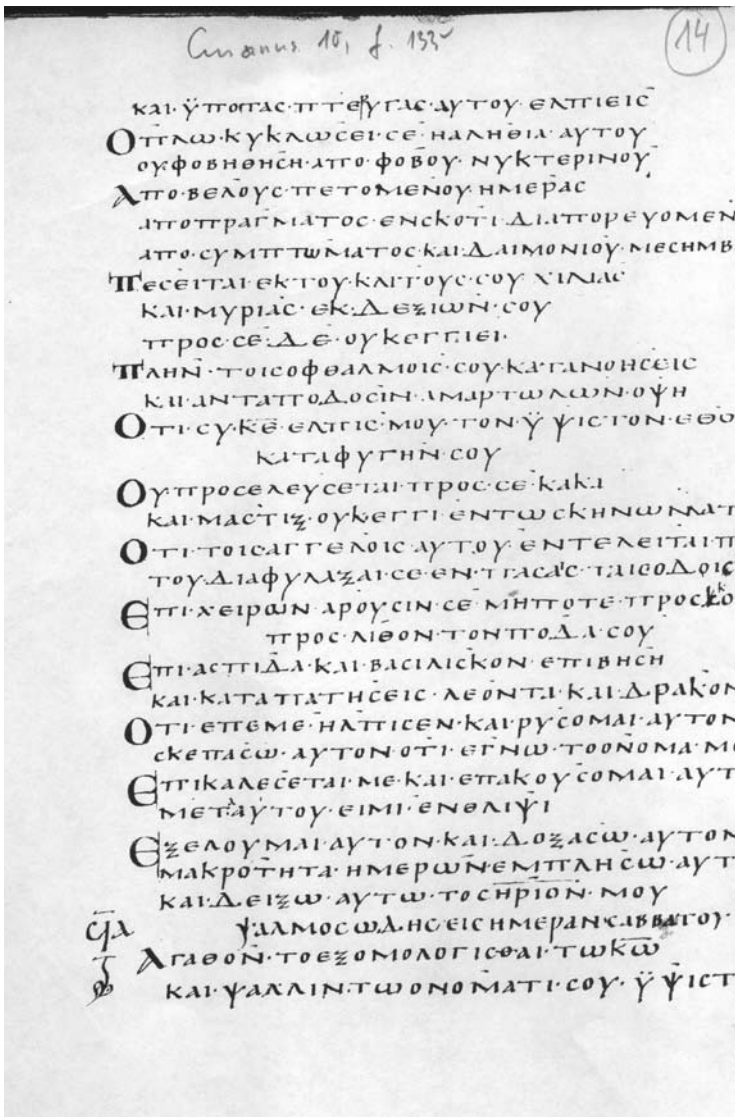 Cusanus 10, f. 135v
14
ΚΑΙ·ΫΠΟΠΑС·ΠΤΕΡΥΓΑС·ΑΥΤΟΥ·ΕΛΠΙΕΙС
ΟΠΛΩ·ΚΥΚΛΩСΕΙ·СΕ·ΗΑΛΗΘΙΑ·ΑΥΤΟΥ
ΟΥ·ΦΟΒΗΘΗСΗ·ΑΠΟ·ΦΟΒΟΥ·ΝΥΚΤΕΡΙΝΟΥ
ΑΠΟ·ΒΕΛΟΥС·ΠΕΤΟΜΕΝΟΥ·ΗΜΕΡΑС
ΑΠΟΠΡΑΓΜΑΤΟС·ΕΝСΚΟΤΙ·ΔΙΑΠΟΡΕΥΟΜΕΝ
ΑΠΟ·СΥΜΠΤΩΜΑΤΟС·ΚΑΙ·ΔΑΙΜΟΝΙΟΥ·ΜΕСΗΜΒ
ΠΕСΕΙΤΑΙ·ΕΚΤΟΥ·ΚΛΙΤΟΥС·СΟΥ·ΧΙΛΙΑС
ΚΑΙ·ΜΥΡΙΑС·ΕΚ·ΔΕΞΙΩΝ·СΟΥ
ΠΡΟС·СΕ·ΔΕ·ΟΥΚΕΓΓΙΕΙ·
ΠΛΗΝ·ΤΟΙСΟΦΘΑΛΜΟΙС·СΟΥ·ΚΑΤΑΝΟΗСΕΙС
ΚΑΙ·ΑΝΤΑΠΟΔΟСΙΝ·ΑΜΑΡΤΩΛΩΝ·ΟΨΗ
ΟΤΙ·СΥ·Κ̅Ε̅·ΕΛΠΙС·ΜΟΥ·ΤΟΝ·ΫΨΙСΤΟΝ·ΕΘΟ
ΚΑΤΑΦΥΓΗΝ·СΟΥ
ΟΥΠΡΟСΕΛΕΥСΕΤΑΙ·ΠΡΟС·СΕ·ΚΑΚΑ
ΚΑΙ·ΜΑСΤΙΞ·ΟΥΚΕΓΓΙ·ΕΝΤΩ·СΚΗΝΩΜΑΤ
ΟΤΙ·ΤΟΙСΑΓΓΕΛΟΙС·ΑΥΤΟΥ·ΕΝΤΕΛΕΙΤΑΙ·Π
ΤΟΥ·ΔΙΑΦΥΛΑΞΑΙ·СΕ·ΕΝ·ΠΑСΑΙС·ΤΑΙСΟΔΟΙС
ΕΠΙ·ΧΕΙΡΩΝ·ΑΡΟΥСΙΝ·СΕ·ΜΗΠΟΤΕ·ΠΡΟСΚΟ
ΠΡΟС·ΛΙΘΟΝ·ΤΟΝΠΟΔΑ·СΟΥ
ΕΠΙ·ΑСΠΙΔΑ·ΚΑΙ·ΒΑСΙΛΙСΚΟΝ·ΕΠΙΒΗСΗ
ΚΑΙ·ΚΑΤΑΠΑΤΗСΕΙС·ΛΕΟΝΤΑ·ΚΑΙ·ΔΡΑΚΟΝ
ΟΤΙ·ΕΠΕΜΕ·ΗΛΠΙСΕΝ·ΚΑΙ·ΡΥСΟΜΑΙ·ΑΥΤΟΝ
СΚΕΠΑСΩ·ΑΥΤΟΝ·ΟΤΙ·ΕΓΝΩ·ΤΟΟΝΟΜΑ·ΜΟ
ΕΠΙΚΑΛΕСΕΤΑΙ·ΜΕ·ΚΑΙ·ΕΠΑΚΟΥСΟΜΑΙ·ΑΥΤ
ΜΕΤΑΑΥΤΟΥ·ΕΙΜΙ·ΕΝΘΛΙΨΙ
ΕΞΕΛΟΥΜΑΙ·ΑΥΤΟΝ·ΚΑΙ·ΔΟΞΑСΩ·ΑΥΤΟΝ
ΜΑΚΡΟΤΗΤΑ·ΗΜΕΡΩΝ·ΕΜΠΛΗСΩ·ΑΥΤ
ΚΑΙ·ΔΕΙΞΩ·ΑΥΤΩ·ΤΟСΗΡΙΟΝ·ΜΟΥ
ϤΑ ΨΑΛΜΟСΩΔΗС·ΕΙСΗΜΕΡΑΝСΑΒΒΑΤΟΥ·
ΑΓΑΘΟΝ·ΤΟΕΞΟΜΟΛΟΓΙСΘΑΙ·ΤΩΚ̅Ω̅
ΚΑΙ·ΨΑΛΛΙΝ·ΤΩΟΝΟΜΑΤΙ·СΟΥ·ΫΨΙСΤ